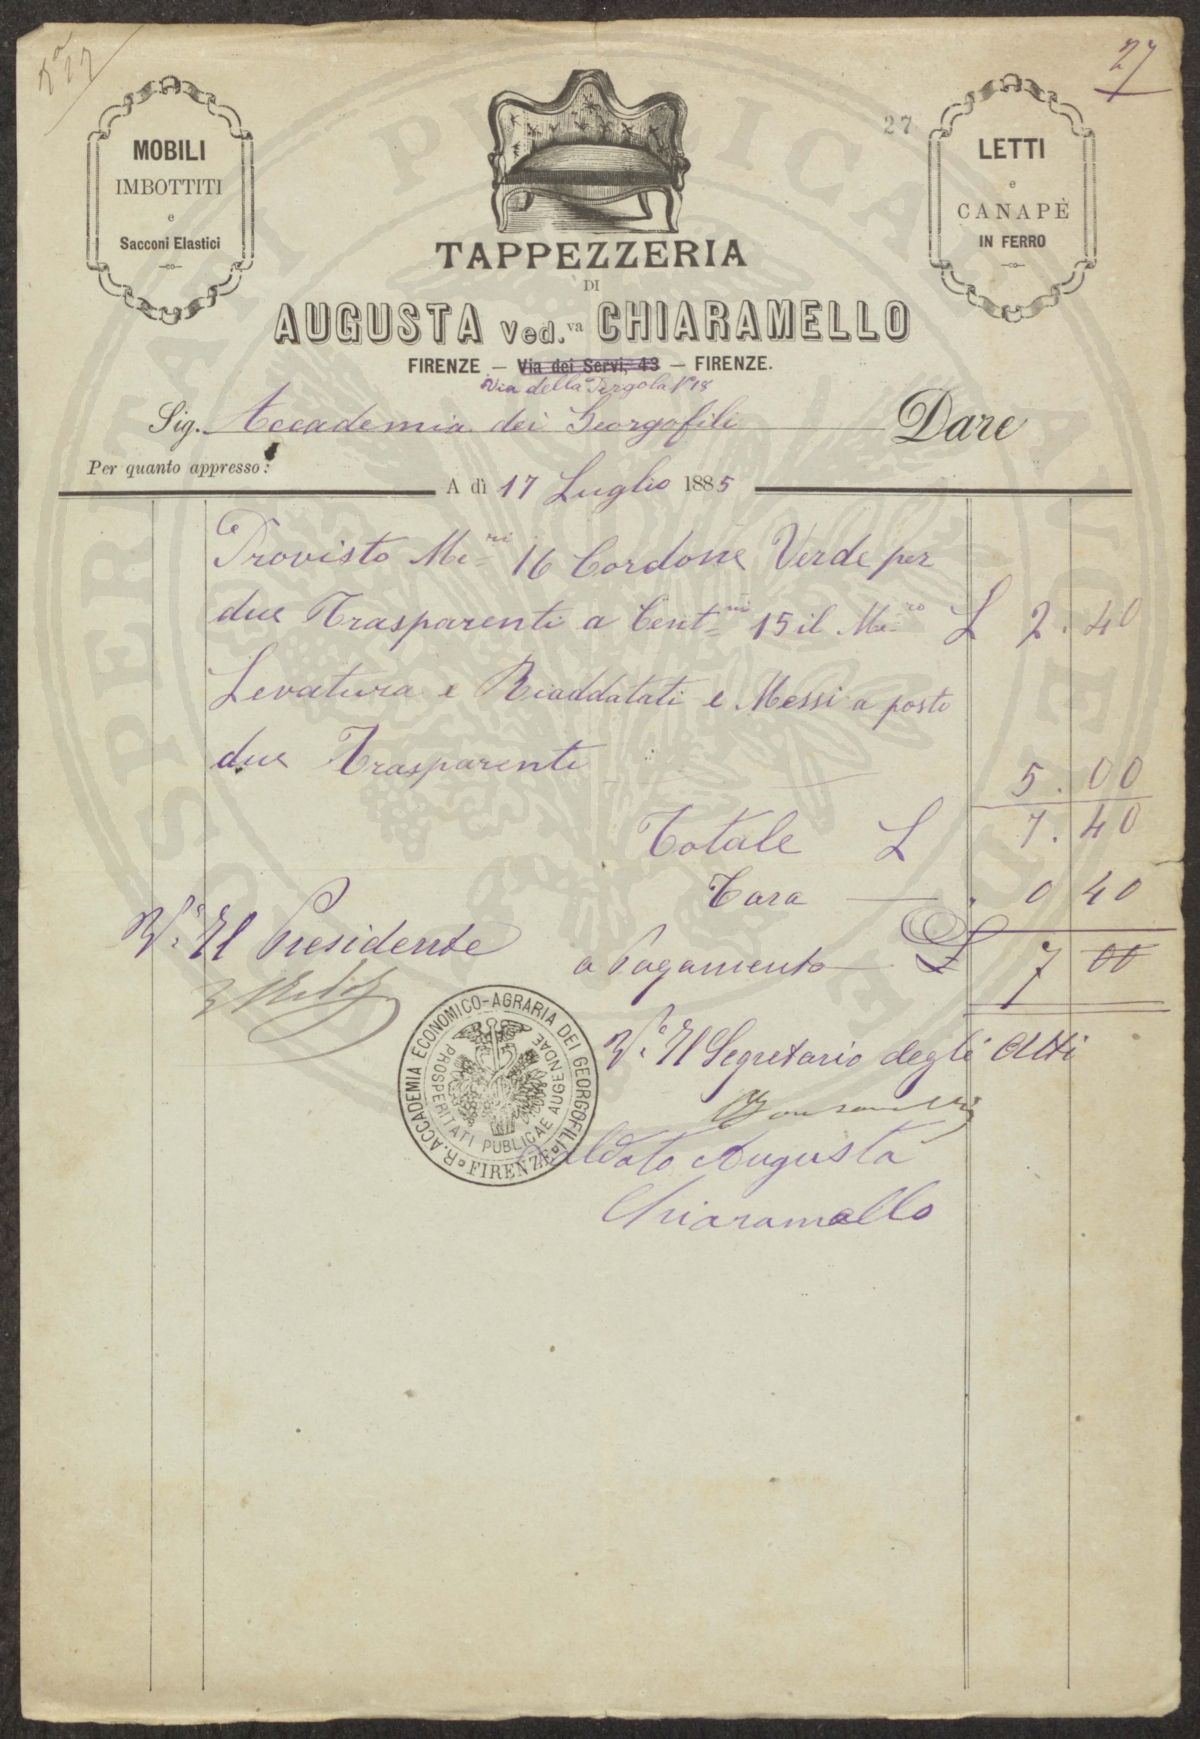 27
27
MOBILI
IMBOTTITI
e
Sacconi Elastici
LETTI
e
CANAPÈ
IN FERRO
TAPPEZZERIA
DI
AUGUSTA Ved.va CHIARAMELLO
FIRENZE — Via dei Servi, 43 — FIRENZE.
Via della Pergola N° 18
Sig. Accademia dei Georgofili Dare
Per quanto appresso:
A dì 17 Luglio 1885
Provisto Me.ri 16 Cordone Verde per
due Trasparenti a Cent.mi 15 il Me.ro L 2.40
Levatura e Riaddatati e Messi a posto
due Trasparenti 5.00
Totale L 7.40
Tara — 0 40
a Pagamento — L 7 00
V.° Il Presidente
V.° Il Segretario degli Atti
R. ACCADEMIA ECONOMICO-AGRARIA DEI GEORGOFILI
FIRENZE
PROSPERITATI PUBLICAE AUGENDAE
Saldato Augusta
Chiaramello
PROSPERITATI PUBLICAE AUGENDAE